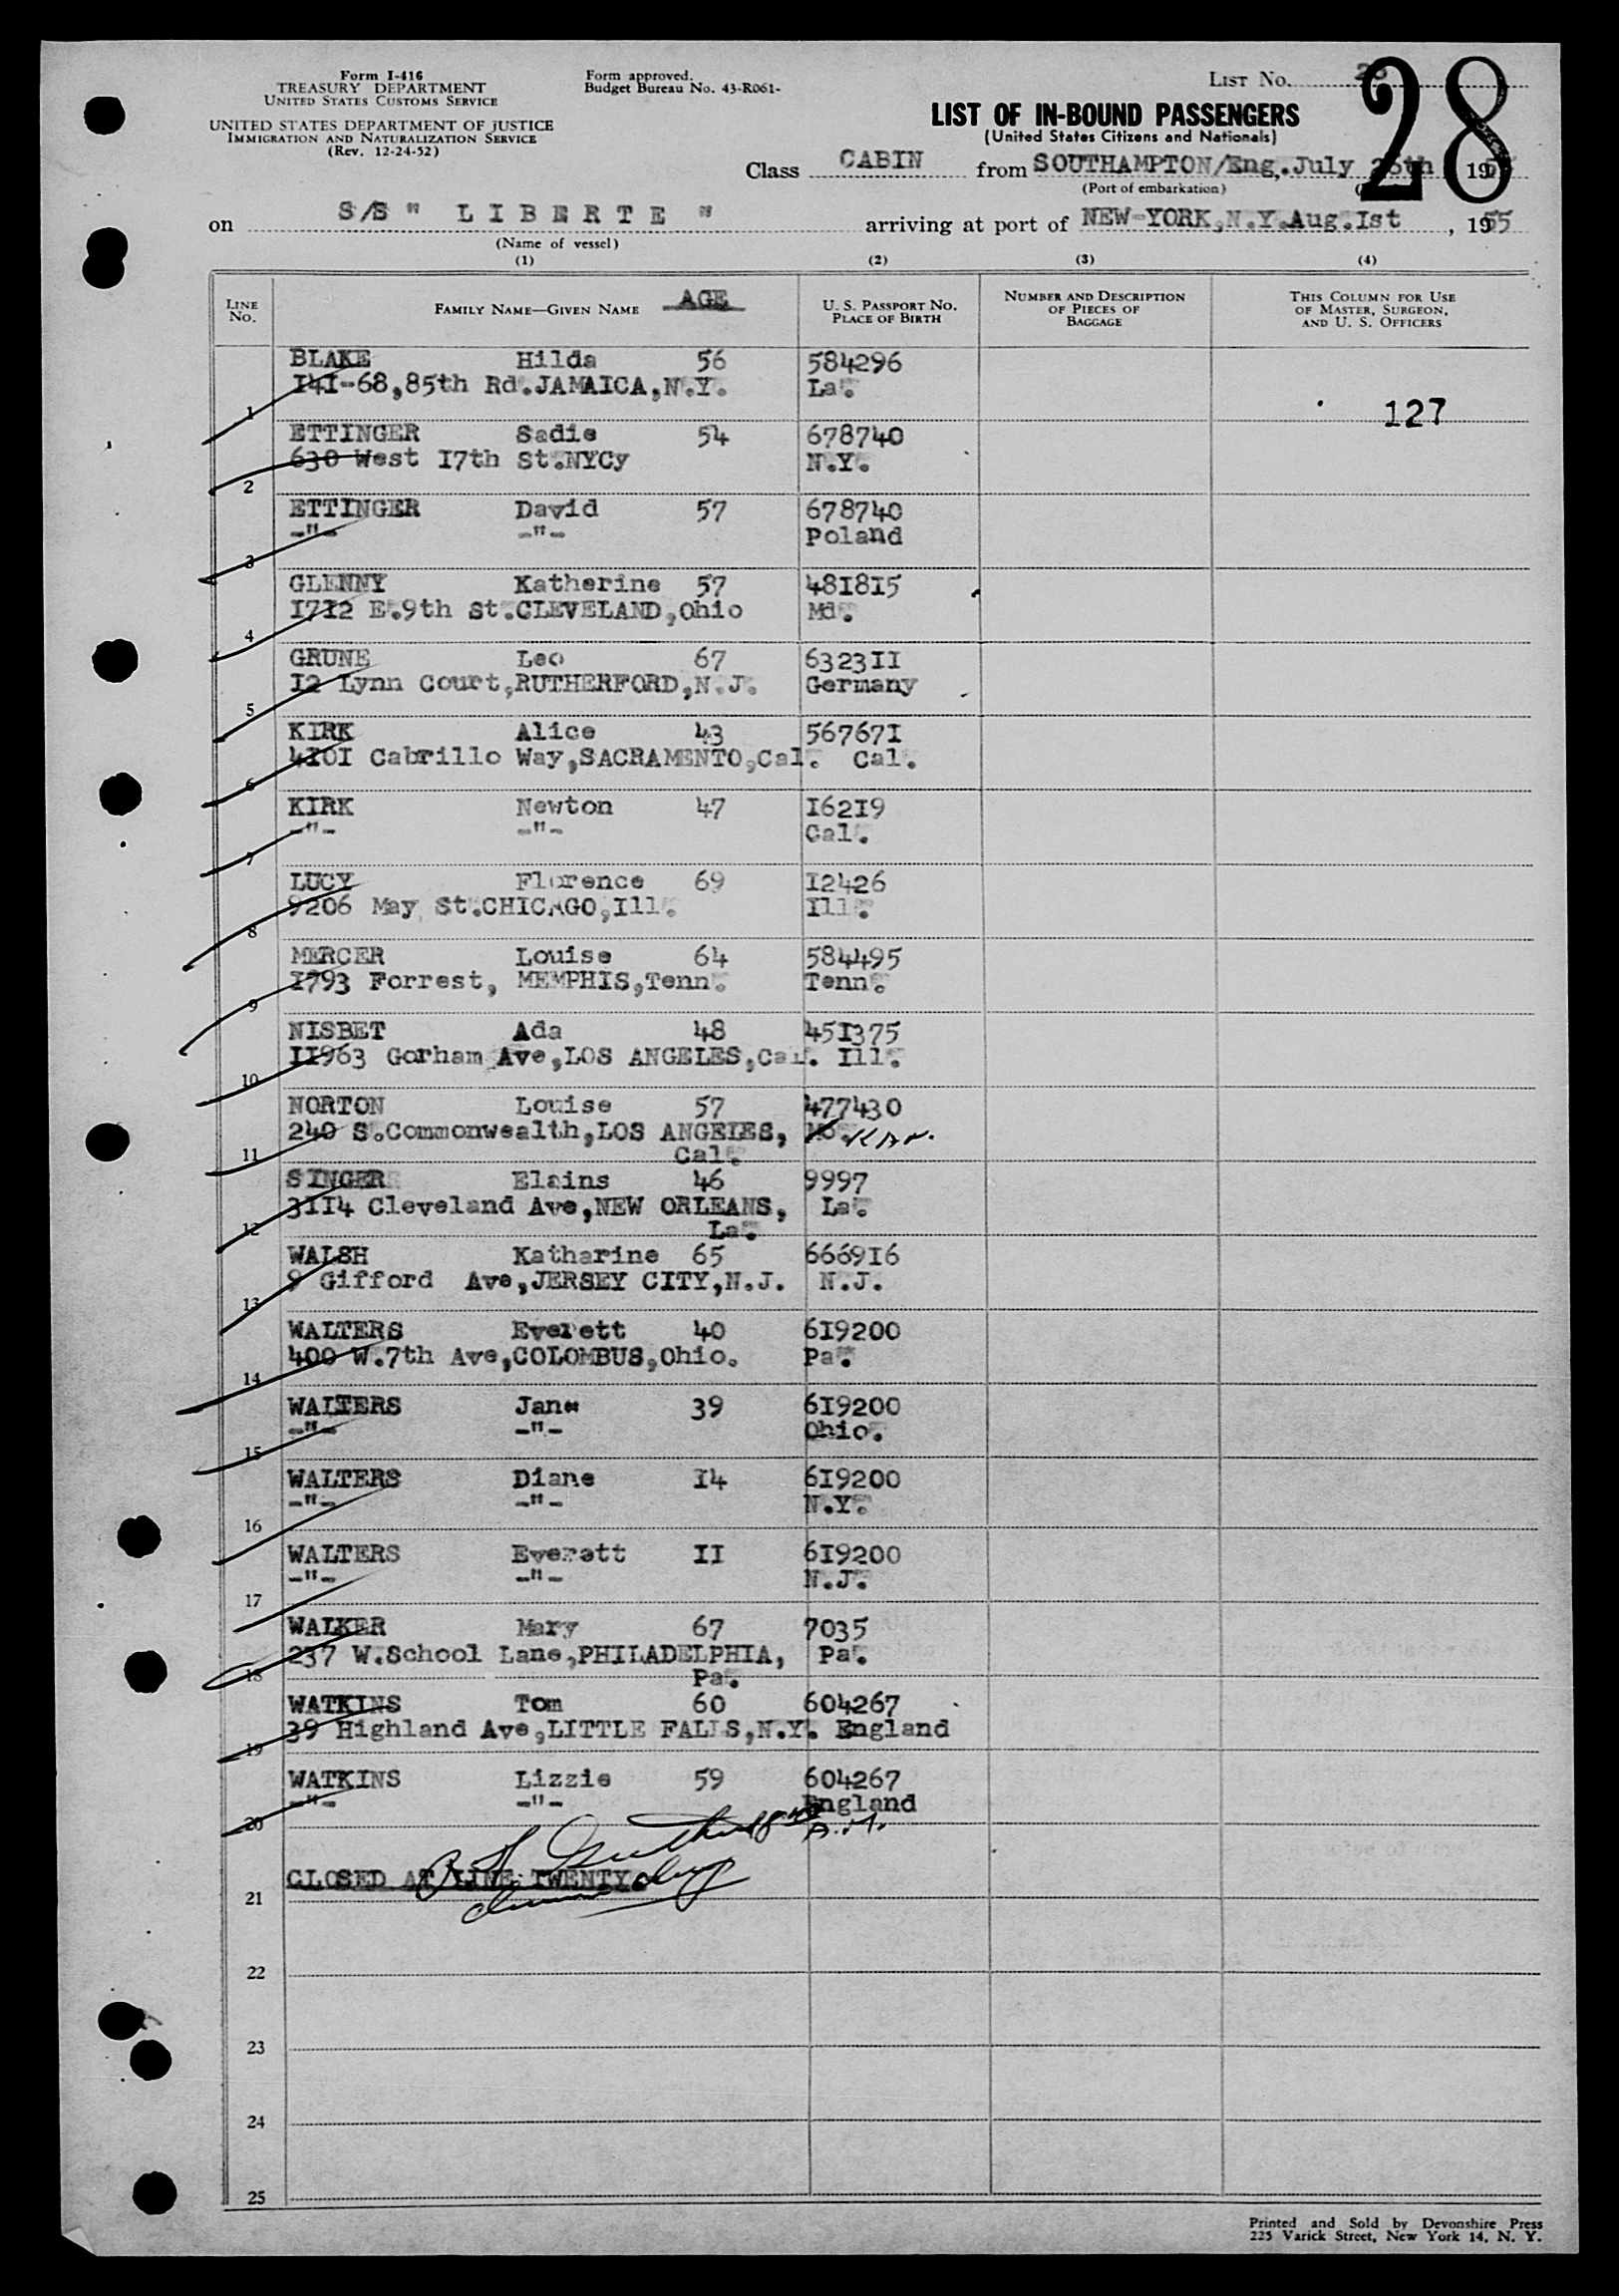 Form I-416
TREASURY DEPARTMENT
UNITED STATES CUSTOMS SERVICE
UNITED STATES DEPARTMENT OF JUSTICE
IMMIGRATION AND NATURALIZATION SERVICE
(Rev. 12-24-52)
Form approved.
Budget Bureau No. 43-R061-
LIST No. 28
28
LIST OF IN-BOUND PASSENGERS
(United States Citizens and Nationals)
Class CABIN from SOUTHAMPTON/Eng,.July 19
(Port of embarkation)
on S/S " LIBERTE " arriving at port of NEW-YORK,N.Y.Aug.Ist, 1955
(Name of vessel)
(1) (2) (3) (4)
LINE No. FAMILY NAME—GIVEN NAME AGE U. S. PASSPORT NO. PLACE OF BIRTH NUMBER AND DESCRIPTION OF PIECES OF BAGGAGE THIS COLUMN FOR USE OF MASTER, SURGEON, AND U. S. OFFICERS
BLAKE Hilda 56 584296
I4I-68,85th Rd.JAMAICA,N.Y. La.
1 127
ETTINGER Sadie 54 678740
630 West I7th St.NYCy N.Y.
2
ETTINGER David 57 678740
-"- -"- Poland
3
GLENNY Katherine 57 48I8I5
I7I2 E.9th St.CLEVELAND,Ohio Md.
4
GRUNE Leo 67 6323II
I2 Lynn Court,RUTHERFORD,N.J. Germany
5
KIRK Alice 43 56767I
4I0I Cabrillo Way,SACRAMENTO,Cal. Cal.
6
KIRK Newton 47 I62I9
-"- -"- Cal.
7
LUCY Florence 69 I2426
9206 May St.CHICAGO,Ill. Ill.
8
MERCER Louise 64 584495
I793 Forrest, MEMPHIS,Tenn. Tenn.
9
NISBET Ada 48 45I375
II963 Gorham Ave,LOS ANGELES,Cal. Ill.
10
NORTON Louise 57 477430
240 S.Commonwealth,LOS ANGELES, Mo. Kan.
11 Cal.
SINGER Elains 46 9997
3II4 Cleveland Ave,NEW ORLEANS, La.
12 La.
WALSH Katharine 65 6669I6
9 Gifford Ave,JERSEY CITY,N.J. N.J.
13
WALTERS Everett 40 6I9200
400 W.7th Ave,COLOMBUS,Ohio. Pa.
14
WALTERS Jane 39 6I9200
-"- -"- Ohio.
15
WALTERS Diane I4 6I9200
-"- -"- N.Y.
16
WALTERS Everett II 6I9200
-"- -"- N.J.
17
WALKER Mary 67 7035
237 W.School Lane,PHILADELPHIA, Pa.
18 Pa.
WATKINS Tom 60 604267
39 Highland Ave,LITTLE FALLS,N.Y. England
19
WATKINS Lizzie 59 604267
-"- -"- England
20
CLOSED AT LINE TWENTY.
21
22
23
24
25
Printed and Sold by Devonshire Press
225 Varick Street, New York 14, N. Y.